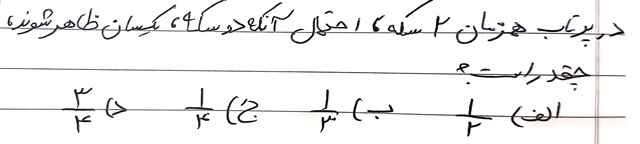 در پرتاب همزمان ۲ سکه، احتمال آنکه دو سکه، یکسان ظاهر شوند،
چقدر است؟
الف) ۱/۲ ب) ۱/۳ ج) ۱/۴ د) ۳/۴